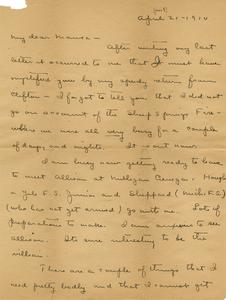 April 21-1910
My dear Mamma-
After writing my last
letter it occurred to me that I must have
mystified you by my speedy return from
Clifton - I forgot to tell you that I did not
go on account of the Sheep Springs Fire-
where we were all very busy for a couple
of days and nights. It is out now.
I am busy now getting ready to leave
to meet Allison at Milligan Cienega.
a Yale F.S. Junior and Sheppard (Mich. F.S.)
(who has not yet arrived) go with me. Lots of
preparation to make. I am anxious to see
Allison. Its sure interesting to be the
villain.
There are a couple of things that I
need pretty badly and that I cannot get